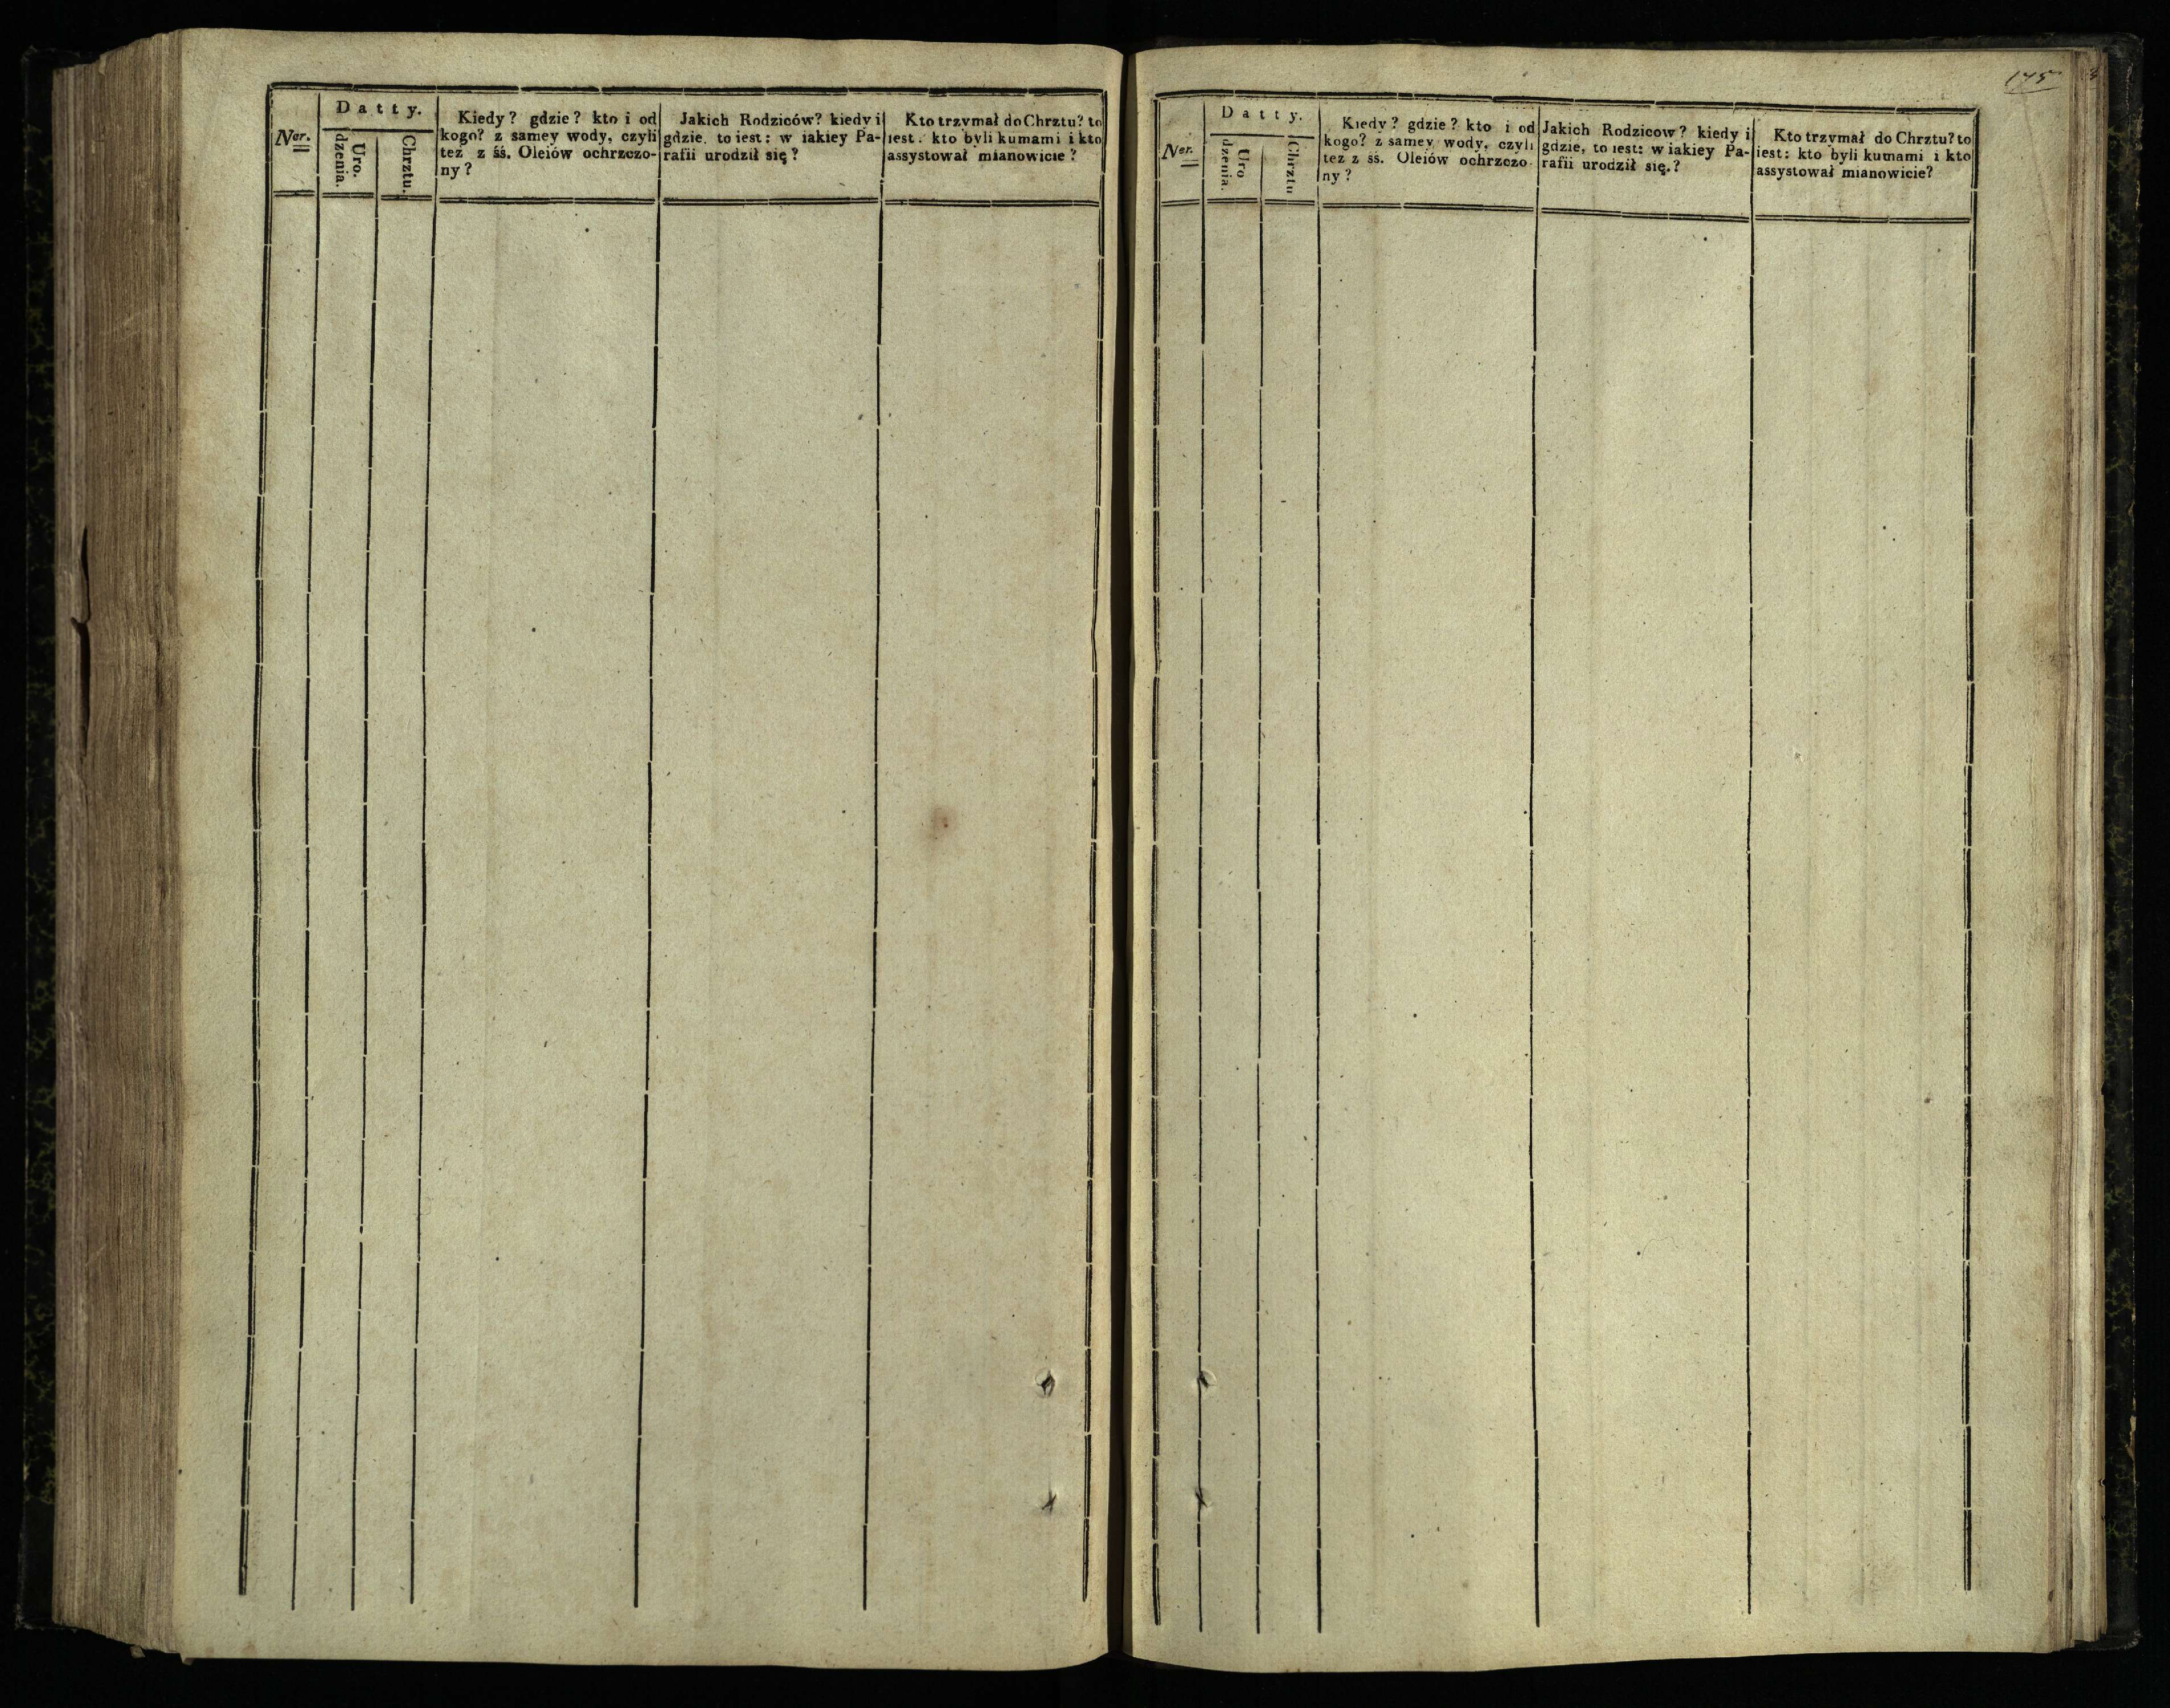 Ner.
Datty.
Uro.
dzenia.
Chrztu.
Kiedy? gdzie? kto i od
kogo? z samey wody, czyli
tez z śś. Oleiów ochrzczo-
ny?
Jakich Rodziców? kiedy i
gdzie, to iest: w iakiey Pa-
rafii urodził się?
Kto trzymał do Chrztu? to
iest: kto byli kumami i kto
assystował mianowicie?
175
Ner.
Datty.
Uro
dzenia.
Chrztu
Kiedy? gdzie? kto i od
kogo? z samey wody, czyli
tez z śś. Oleiów ochrzczo-
ny?
Jakich Rodzicow? kiedy i
gdzie, to iest: w iakiey Pa-
rafii urodził się.?
Kto trzymał do Chrztu? to
iest: kto byli kumami i kto
assystował mianowicie?